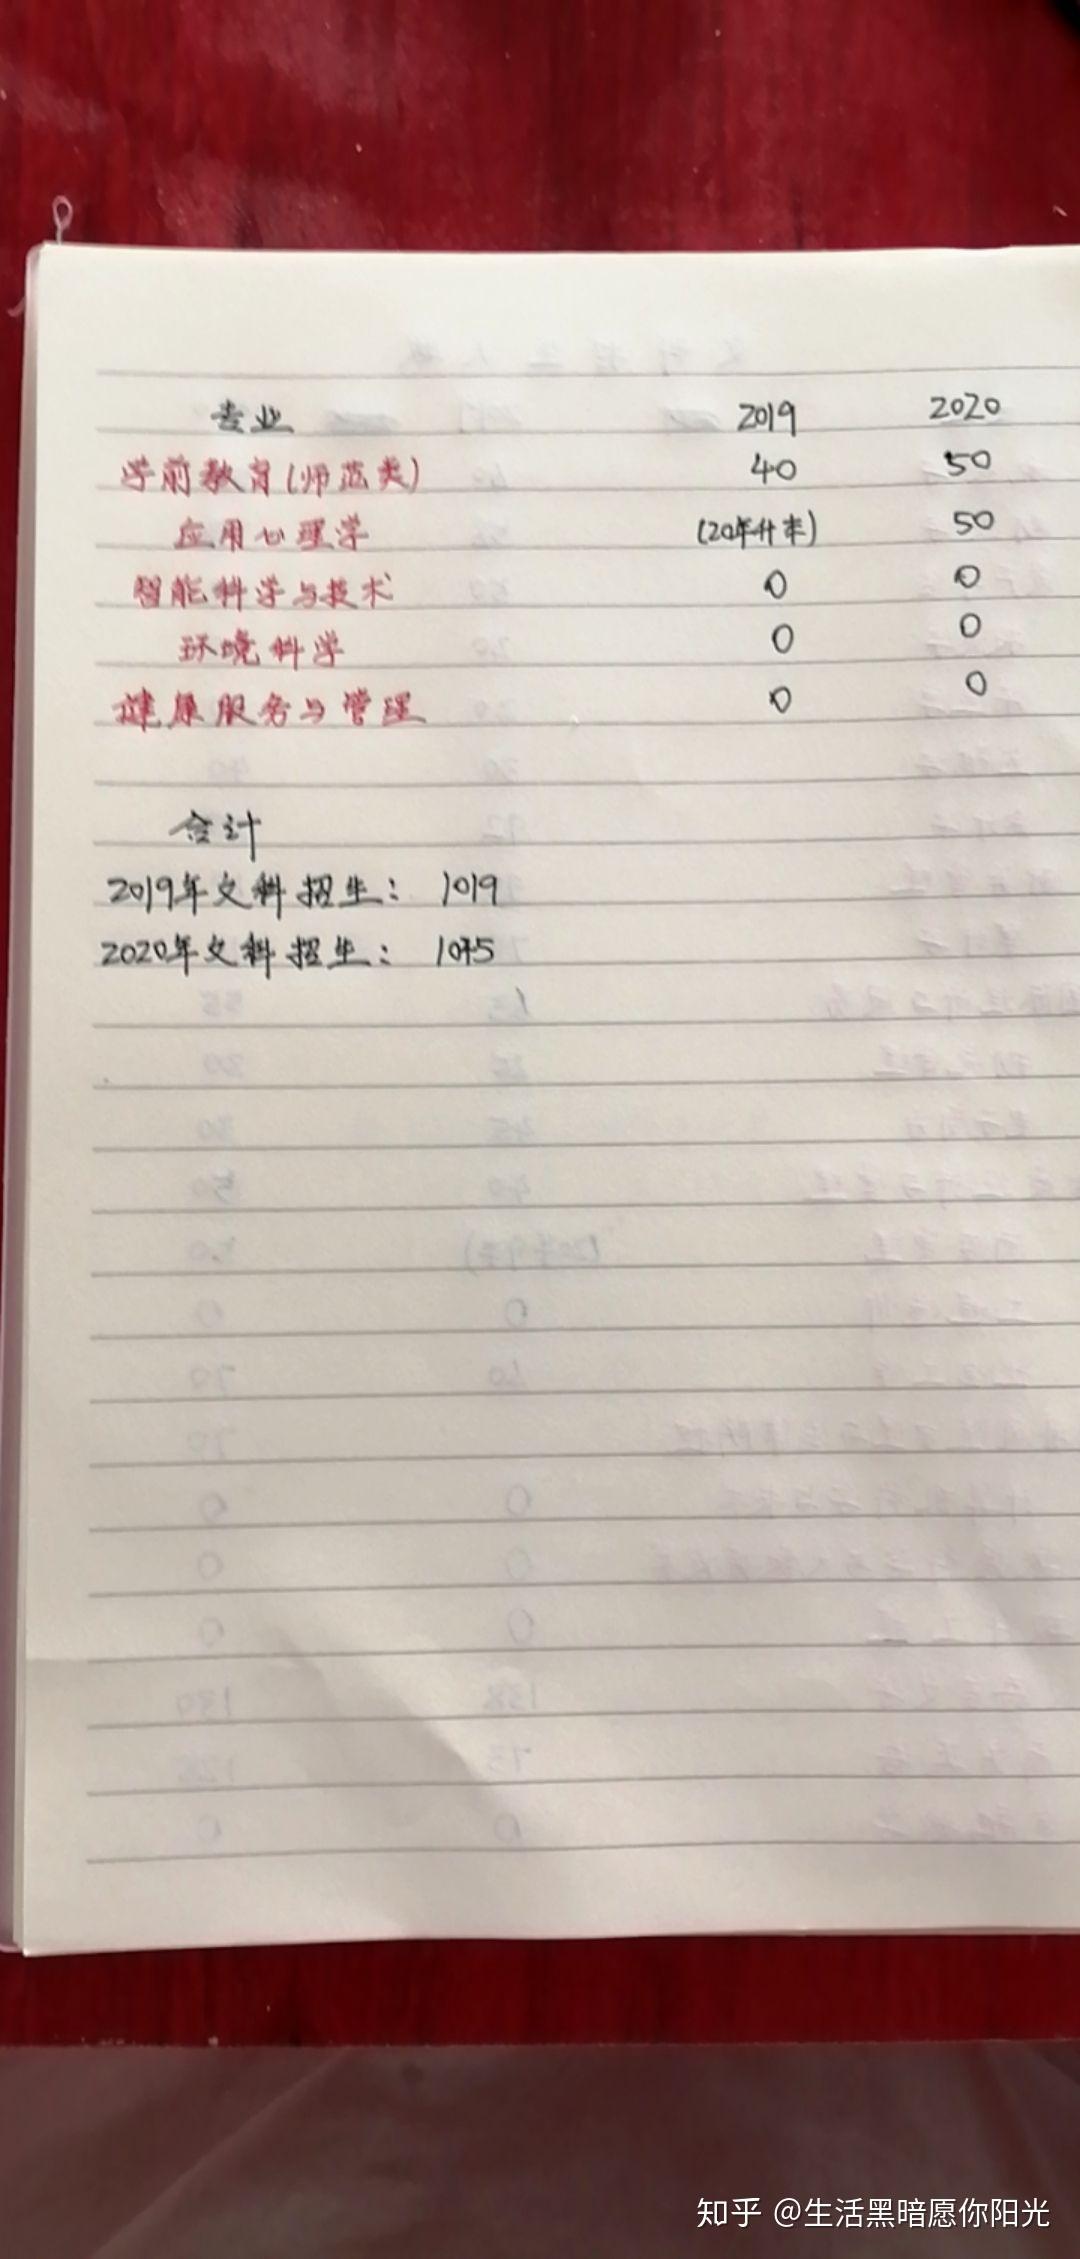 专业 2019 2020
学前教育(师范类) 40 50
应用心理学 (20年升本) 50
智能科学与技术 0 0
环境科学 0 0
健康服务与管理 0 0
合计
2019年文科招生: 1019
2020年文科招生: 1075
知乎 @生活黑暗愿你阳光